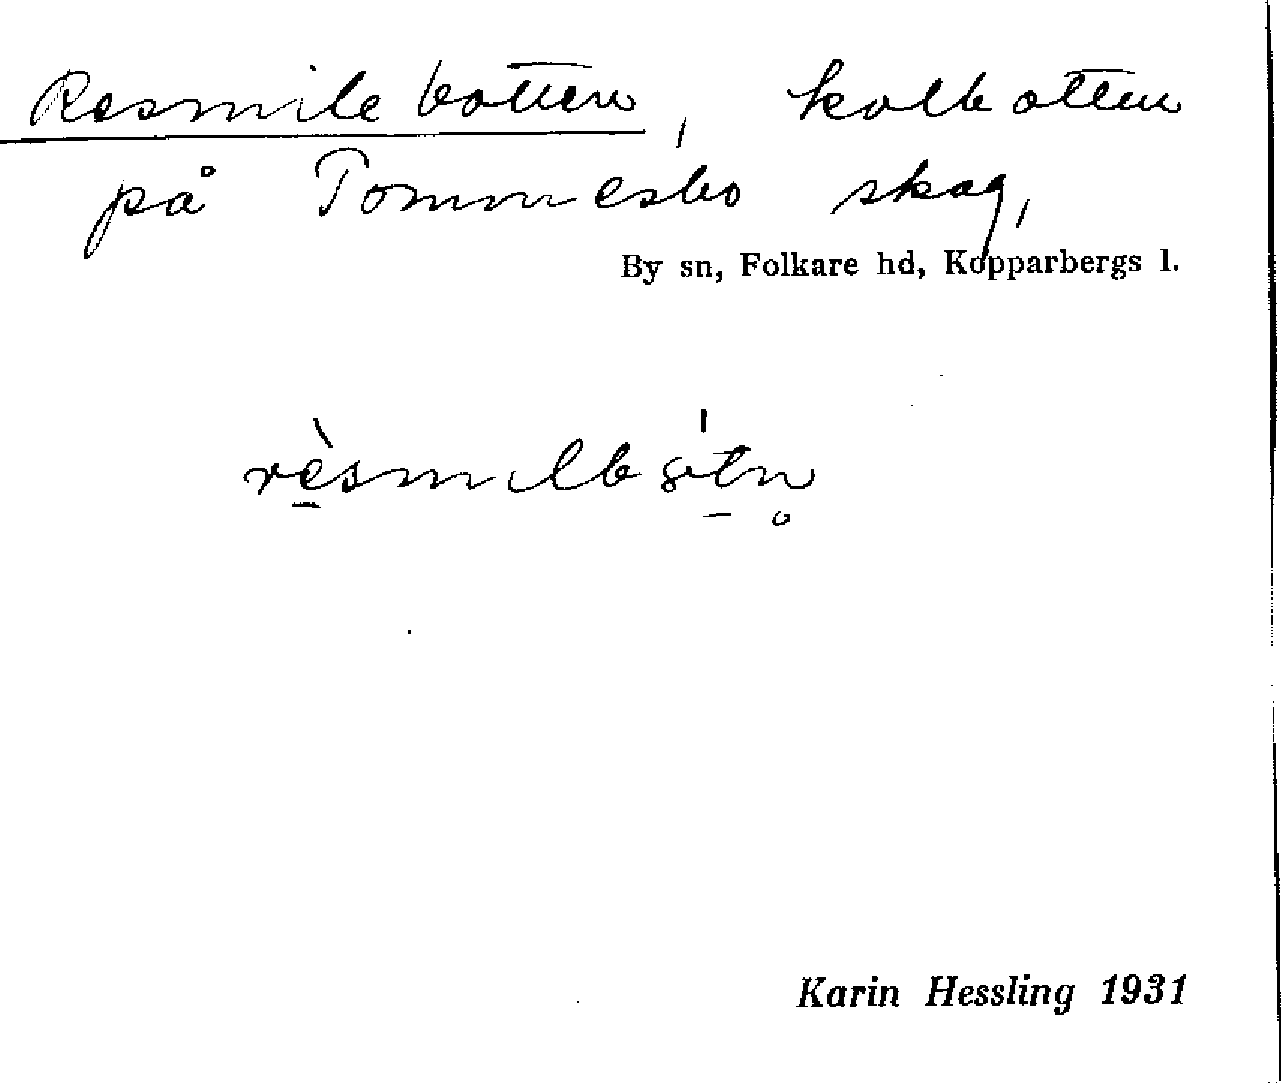 Resmilebotten, kolbotten
på Tommesbo skog,
By sn, Folkare hd, Kopparbergs l.
Karin Hessling 1931